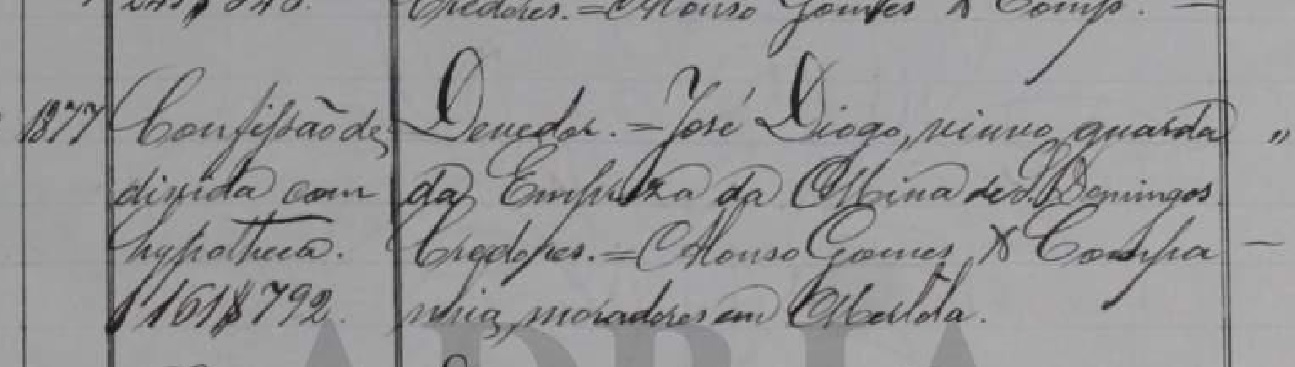 Credores. = Alonso Gomes & Comp. —
1877 Confissão de Devedor. = José Diogo, viuvo, guarda "
divida com da Empreza da Mina de S. Domingos.
hypotheca. Credores. = Alonso Gomes & Compa —
161$792. nhia, moradores em Mertola.
ADRIA